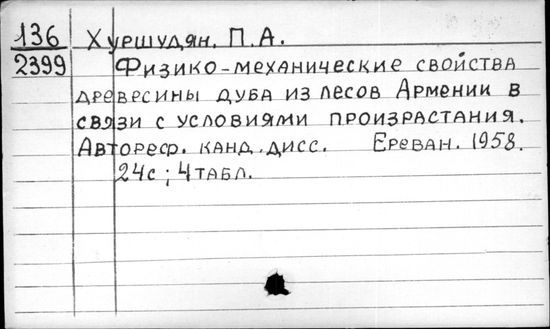 136 Хуршудян. П.А.
2399 Физико-механические свойства
древесины дуба из лесов Армении в
связи с условиями произрастания.
Автореф. канд. дисс. Ереван. 1958.
24с; 4табл.